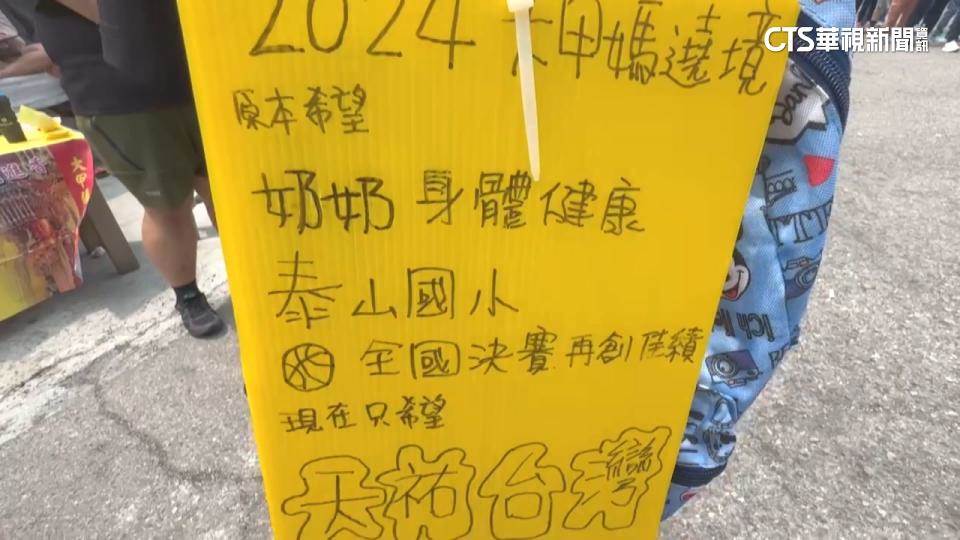 CTS華視新聞資訊
2024 大甲媽遶境
原本希望
奶奶 身體健康
泰山國小
全國決賽 再創佳績
現在只希望
天祐台灣
大甲
Ich